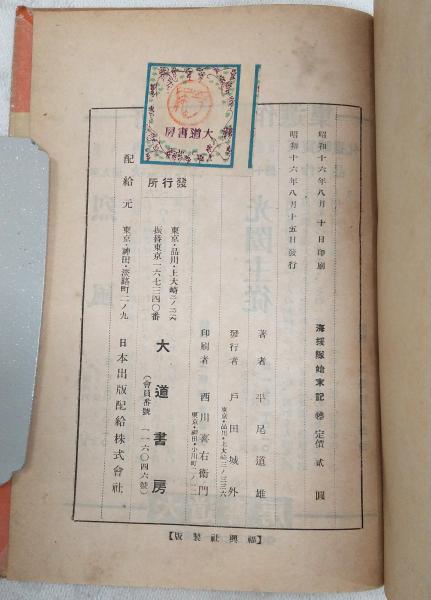 昭和十六年八月 十 日印刷
昭和十六年八月十五日發行
海援隊始末記 定價 貳 圓
著者 平尾道雄
東京・品川・上大崎二ノ三三六
發行者 戸田城外
印刷者 西川喜右衛門
東京・神田・小川町二ノ一二
大道書房
發行所
東京・品川・上大崎二ノ三三六
振替東京一六七三四〇番
大道書房
(會員番號 一一六〇四六號)
配給元
東京・神田・淡路町二ノ九
日本出版配給株式會社
【福興社製版】